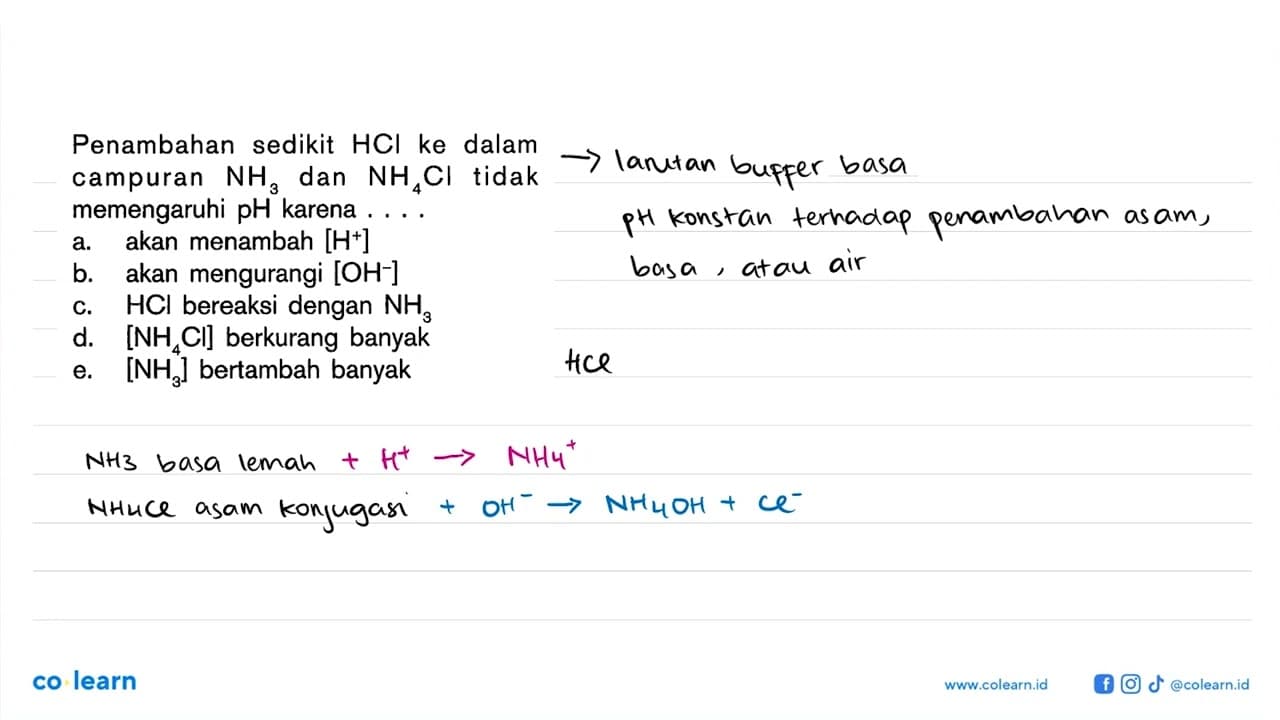 Penambahan sedikit HCl ke dalam
campuran NH₃ dan NH₄Cl tidak
memengaruhi pH karena . . . .
a. akan menambah [H⁺]
b. akan mengurangi [OH⁻]
c. HCl bereaksi dengan NH₃
d. [NH₄Cl] berkurang banyak
e. [NH₃] bertambah banyak
→ larutan buffer basa
pH konstan terhadap penambahan asam,
basa, atau air
HCl
NH3 basa lemah + H⁺ → NH4⁺
NH4Cl asam konjugasi + OH⁻ → NH4OH + Cl⁻
co learn
www.colearn.id
@colearn.id